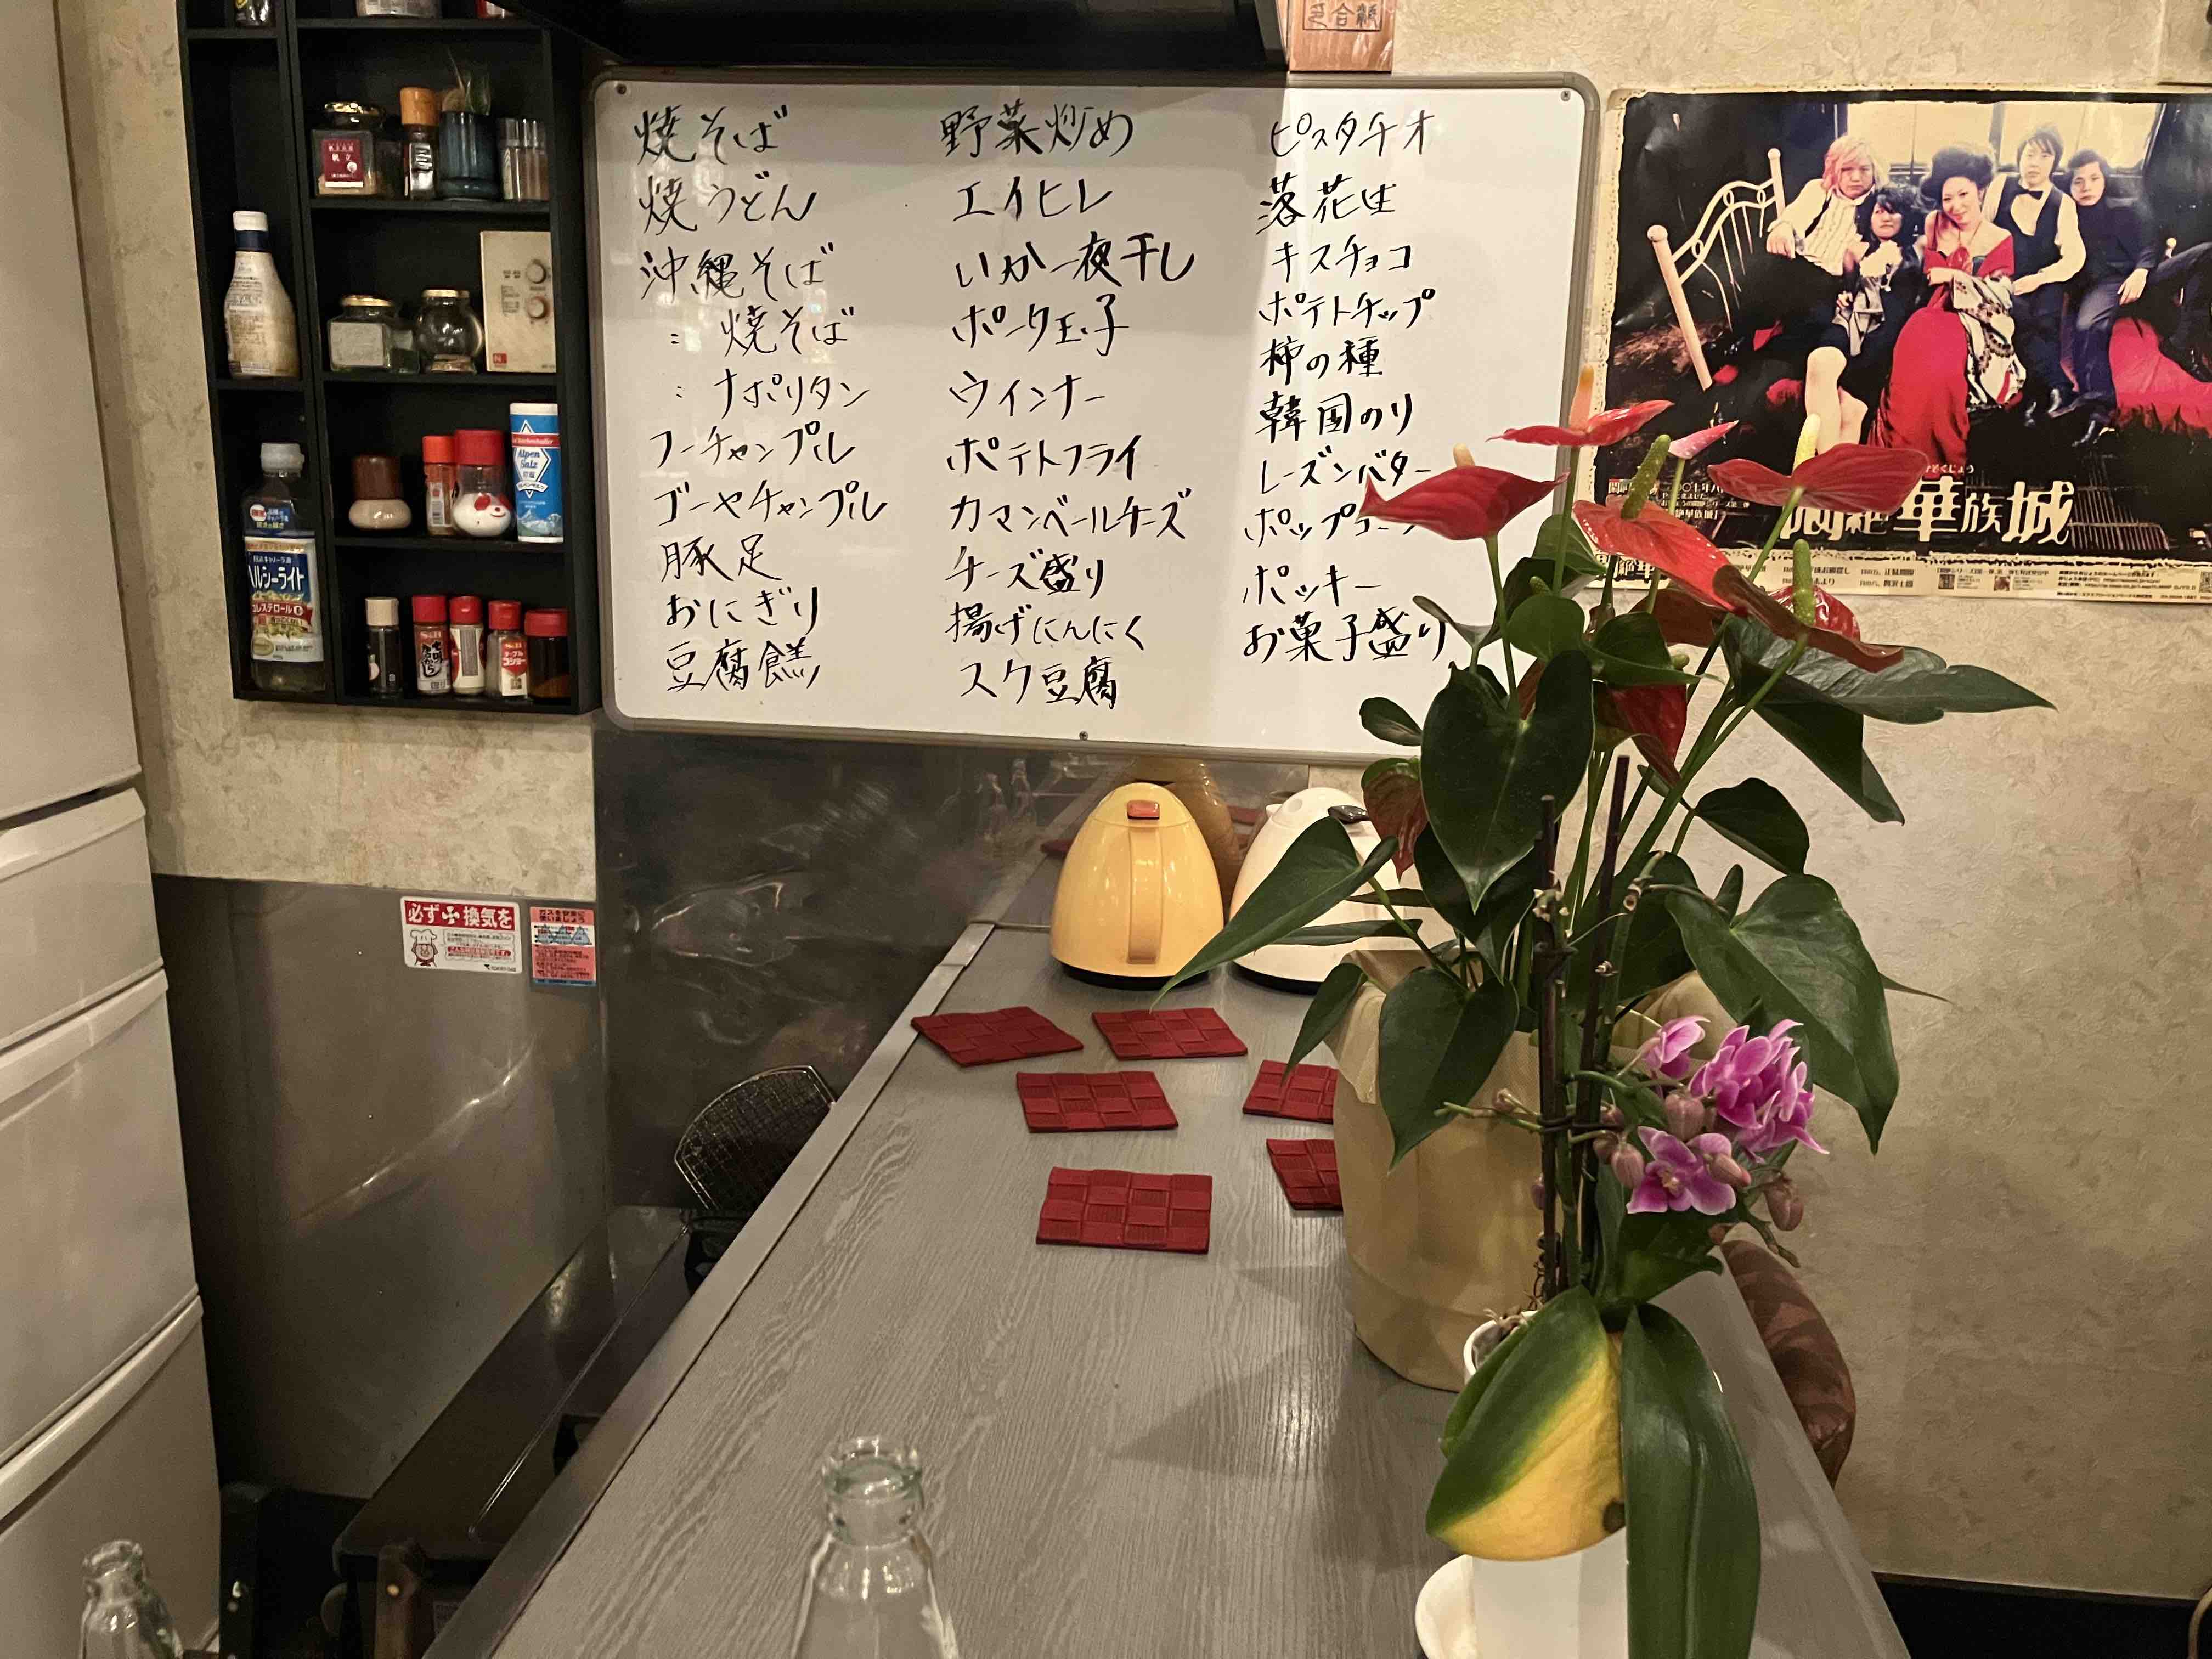 焼そば
焼うどん
沖縄そば
： 焼そば
： ナポリタン
フーチャンプル
ゴーヤチャンプル
豚足
おにぎり
豆腐餻
野菜炒め
エイヒレ
いか一夜干し
ポーク玉子
ウインナー
ポテトフライ
カマンベールチーズ
チーズ盛り
揚げにんにく
スク豆腐
ピスタチオ
落花生
キスチョコ
ポテトチップ
柿の種
韓国のり
レーズンバター
ポップコーン
ポッキー
お菓子盛り
帆立
Alpen
Salz
ヘルシーライト
コレステロール0
S&B
S&B
必ず換気を
ガスを安全に
使いましょう
華族城